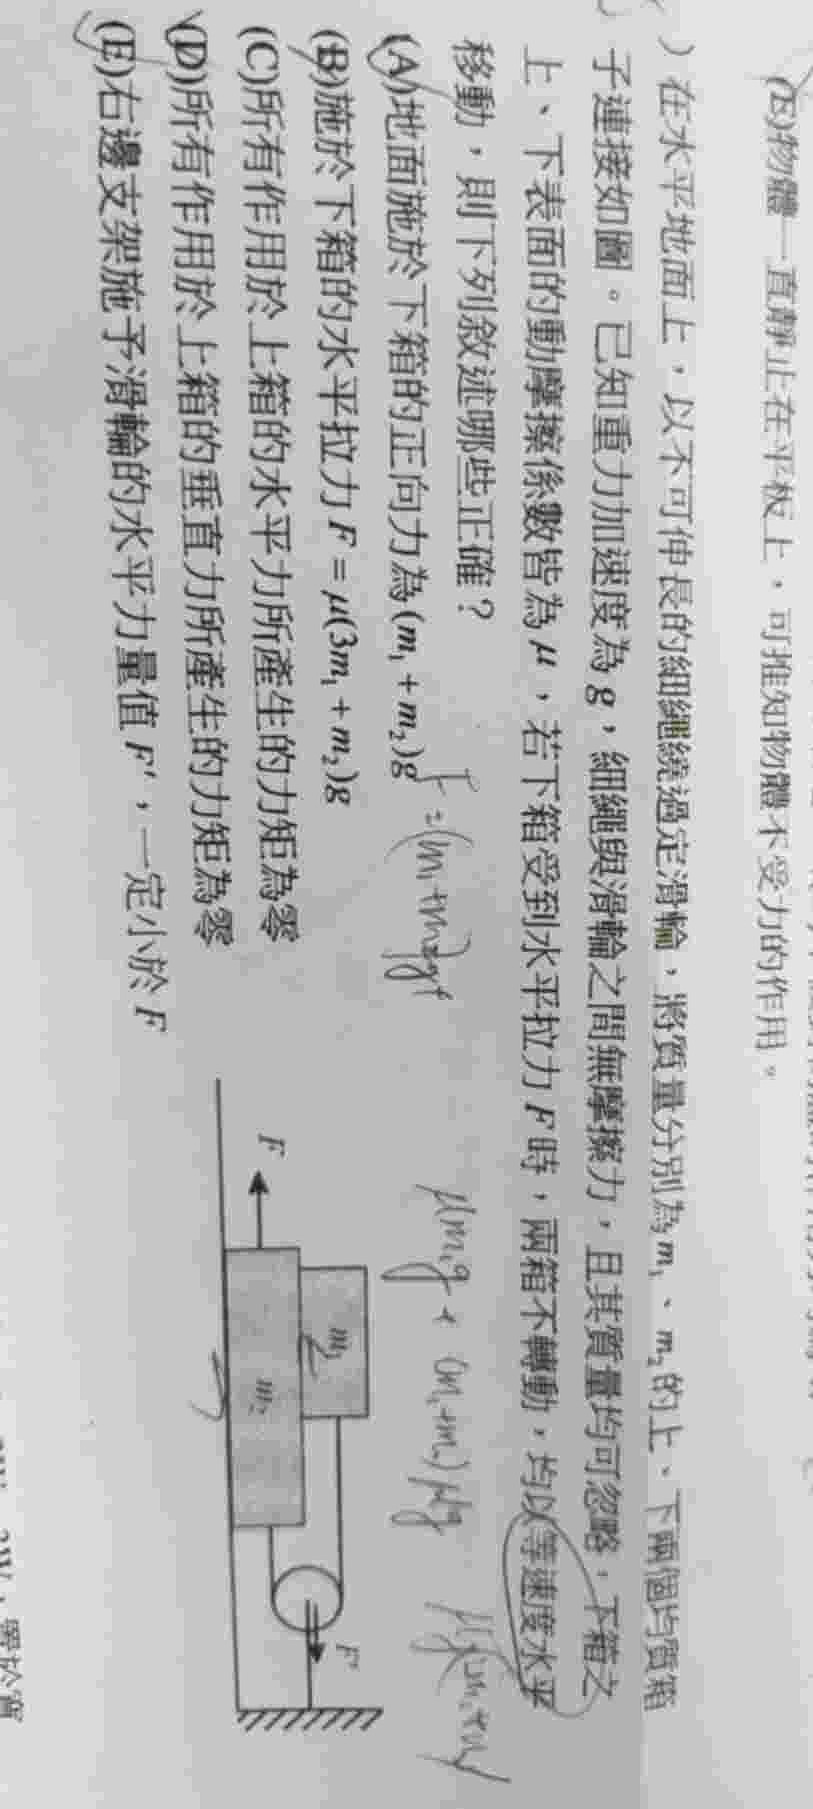 (E)物體一直靜止在平板上，可推知物體不受力的作用。
）在水平地面上，以不可伸長的細繩繞過定滑輪，將質量分別為m₁、m₂的上、下兩個均質箱
子連接如圖。已知重力加速度為g，細繩與滑輪之間無摩擦力，且其質量均可忽略，下箱之
上、下表面的動摩擦係數皆為μ，若下箱受到水平拉力F時，兩箱不轉動，均以等速度水平
移動，則下列敘述哪些正確？
(A)地面施於下箱的正向力為(m₁+m₂)g
(B)施於下箱的水平拉力F=μ(3m₁+m₂)g
(C)所有作用於上箱的水平力所產生的力矩為零
(D)所有作用於上箱的垂直力所產生的力矩為零
(E)右邊支架施予滑輪的水平力量值F'，一定小於F
μm₁g + (m₁+m₂)μg
m₁
m₂
F
F'